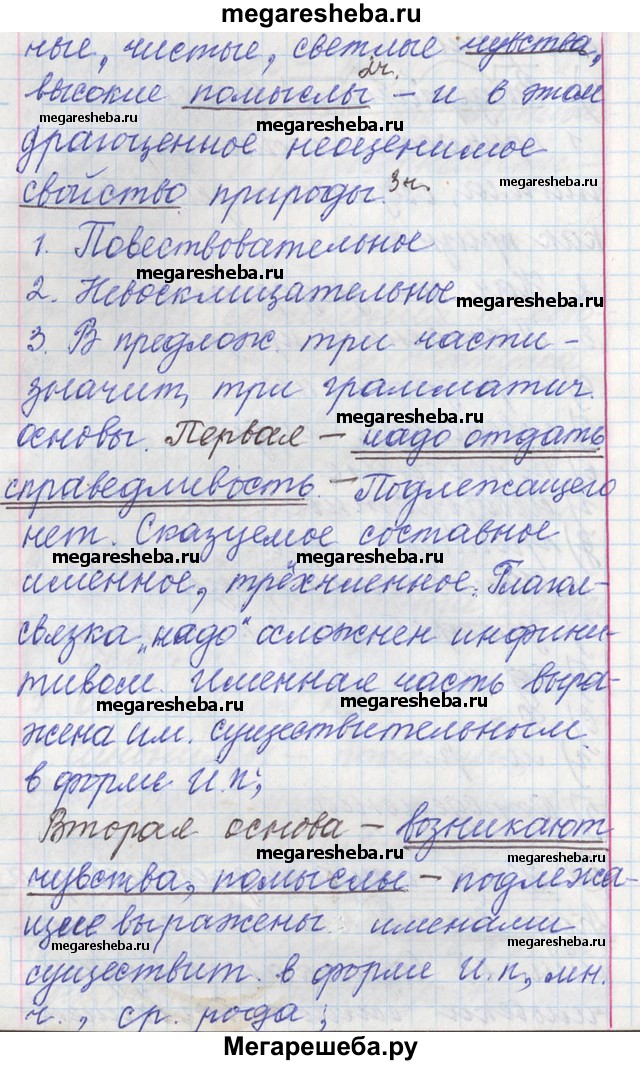 megaresheba.ru
ные, чистые, светлые чувства,
2ч.
высокие помыслы – и в этом
megaresheba.ru megaresheba.ru
драгоценное неоценимое
свойство природы. 3ч.
megaresheba.ru
1. Повествовательное
megaresheba.ru
2. Невосклицательное
megaresheba.ru
3. В предлож. три части –
значит, три грамматич.
megaresheba.ru
основы. Первая – надо отдать
справедливость. – Подлежащего
нет. Сказуемое составное
megaresheba.ru megaresheba.ru
именное, трёхчленное. Глагол-
связка „надо" осложнен инфини-
тивом. Именная часть выра-
megaresheba.ru
жена им. существительным
в форме И.п.;
Вторая основа – возникают
megaresheba.ru megaresheba.ru
чувства, помыслы – подлежа-
щие выражены именами
megaresheba.ru megaresheba.ru
существит. в форме И.п., мн.
ч., ср. рода;
Мегарешеба.ру